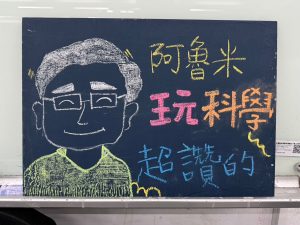 阿魯米
玩科學
超讚的